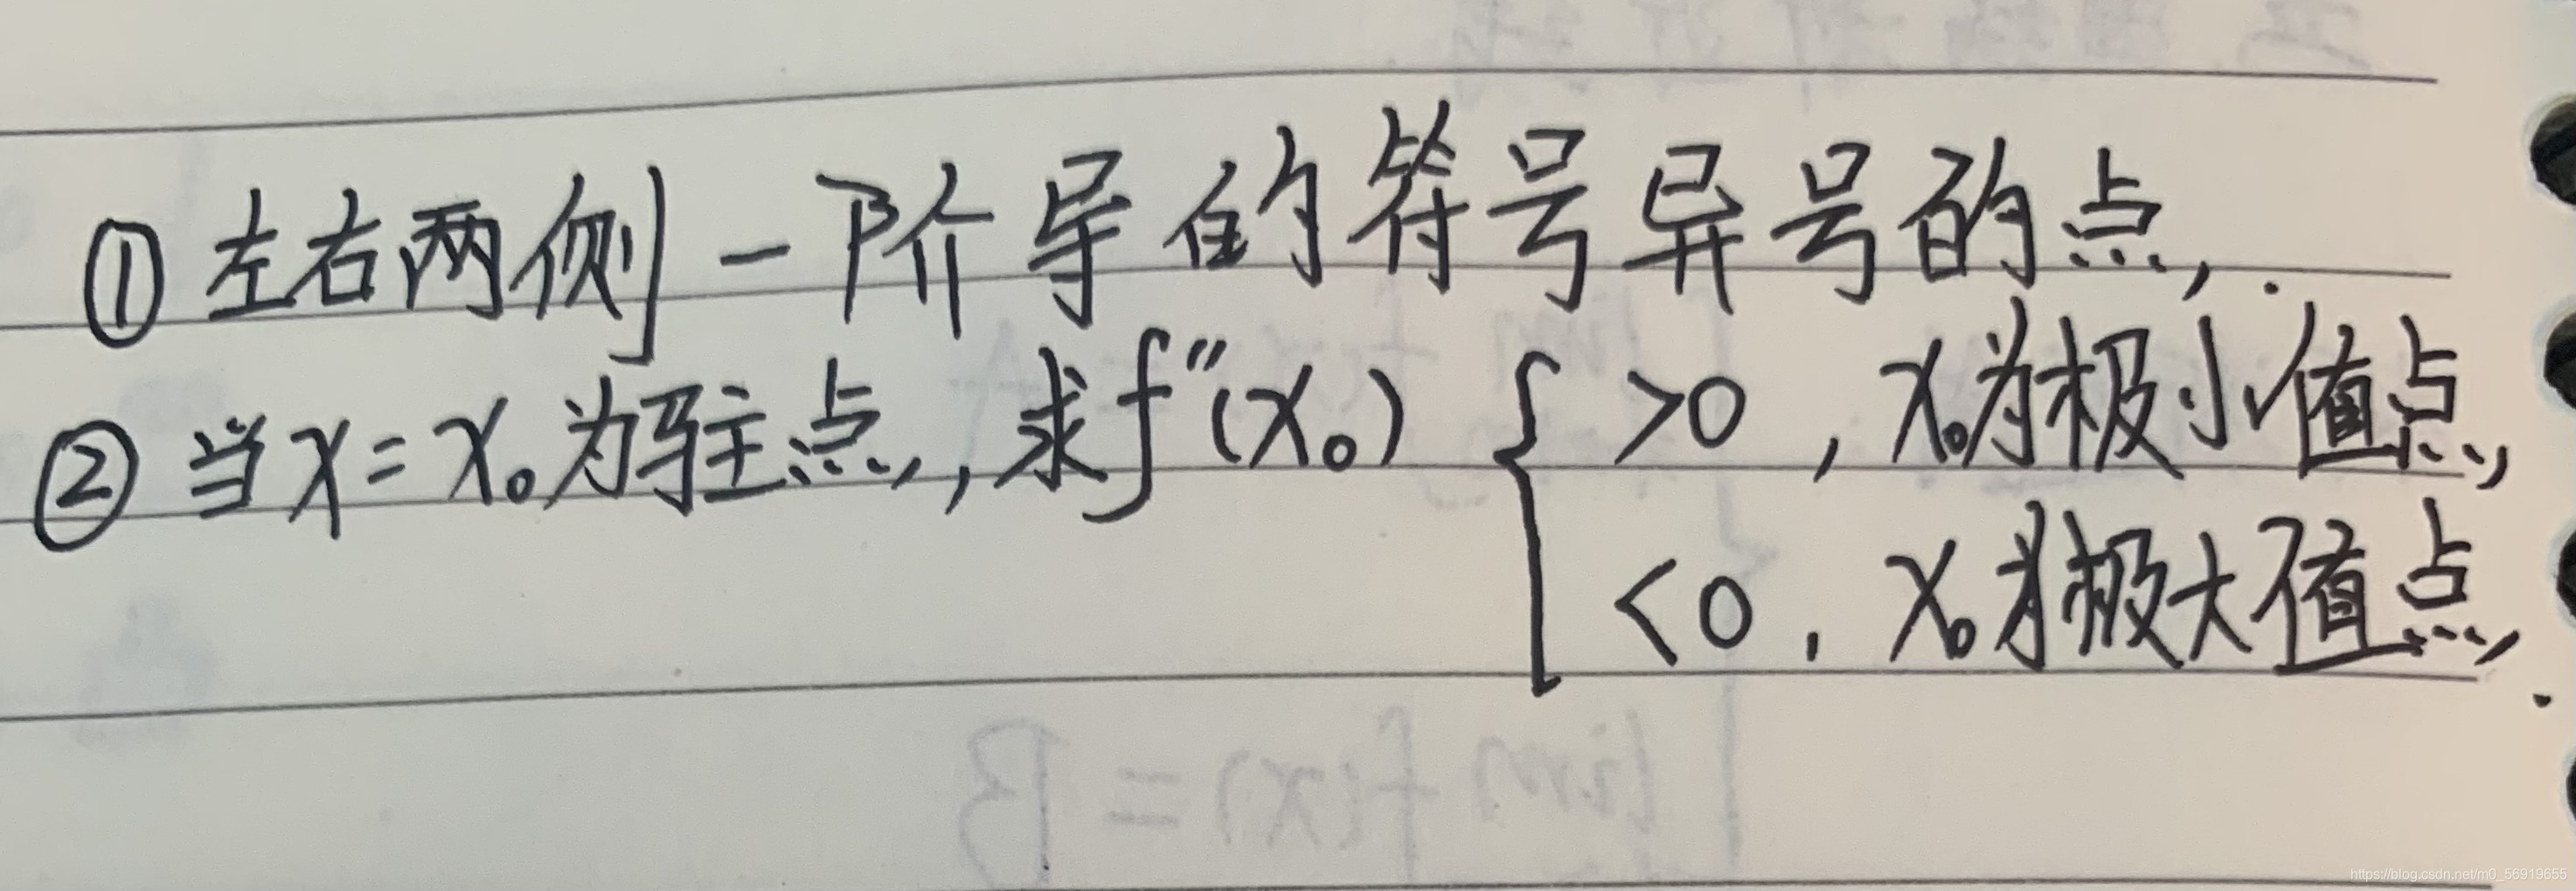 ①左右两侧一阶导的符号异号的点,.
②当x=x₀为驻点,求f″(x₀) { >0 , x₀为极小值点,
<0 , x₀为极大值点.
lim f(x) = B
https://blog.csdn.net/m0_56919655